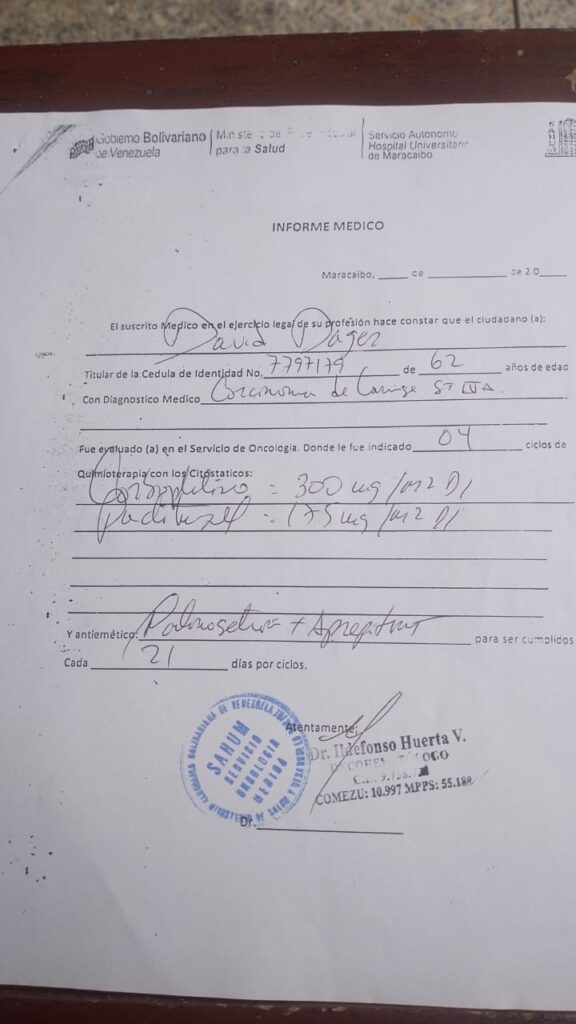 Gobierno Bolivariano de Venezuela
Ministerio del Poder Popular para la Salud
Servicio Autonomo Hospital Universitario de Maracaibo
SAHUM
INFORME MEDICO
Maracaibo, ____ de ____________ de 2.0____
El suscrito Medico en el ejercicio legal de su profesión hace constar que el ciudadano (a):
David Dager
Titular de la Cedula de Identidad No. 7797179 de 62 años de edad
Con Diagnostico Medico Carcinoma de Laringe ST IVA.
Fue evaluado (a) en el Servicio de Oncología. Donde le fue indicado 04 ciclos de
Quimioterapia con los Citóstaticos:
Carboplatino = 300 mg/m2 D1
Paclitaxel = 175 mg/m2 D1
Y antiemético: Palonosetron + Aprepitant para ser cumplidos
Cada 21 días por ciclos.
Atentamente:
SAHUM
SERVICIO
ONCOLOGIA
MEDICA
Dr. Ildefonso Huerta V.
COMEZU: 10.997 MPPS: 55.189
Dr.